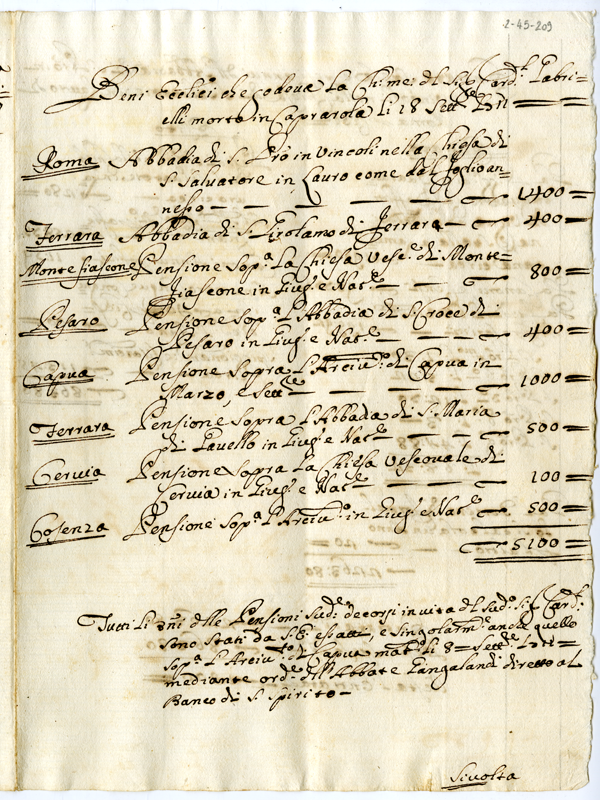 2-45-209
Beni Eccl:ci che godeva La Ch: me: del Sig: Card: Gabri=
elli morto in Caprarola li 18 Sett:e 1711
Roma Abbadia di S. Pro in Vincoli nella Chiesa di
S. Salvatore in Lauro come dal foglio an=
nesso — 1400
Ferrara Abbadia di S. Girolamo di Ferrara — 400
Montefiascone Pensione Sop:a La Chiesa Vesc: di Monte=
fiascone in Giug: e Nat:e — 800
Pesaro Pensione Sop:a L'Abbadia di S. Croce di
Pesaro in Giug: e Nat:e — 400
Capua Pensione Sopra L'Arciv: di Capua in
Marzo, e Sett:e — 1000
Ferrara Pensione Sopra L'Abbadia di S. Maria
di Gavello in Giug: e Nat:e — 500
Cervia Pensione Sopra La Chiesa Vescovale di
Cervia in Giug: e Nat:e — 100
Cosenza Pensione Sop:a L'Arciv: in Giug: e Nat:e 500
5100
Tutti li delle Pensioni Sud:e decorsi in vita del Sud: Sig: Card:
sono stati da S.E. esatti, e singolarm:e anche quello
Sop:a L'Arciv:to di Capua mat:to li 8 Sett:e 1711
mediante ord:e dell'Abbate diretto al
Banco di S. Spirito —
Sivolta